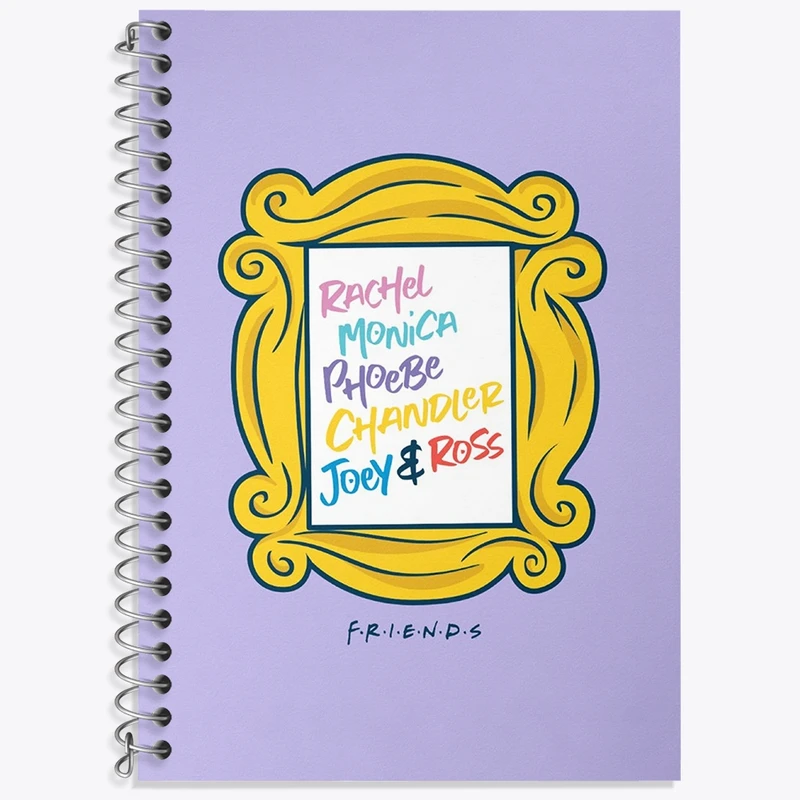 RACHEL
MONICA
PHOEBE
CHANDLER
JOEY & ROSS
F·R·I·E·N·D·S